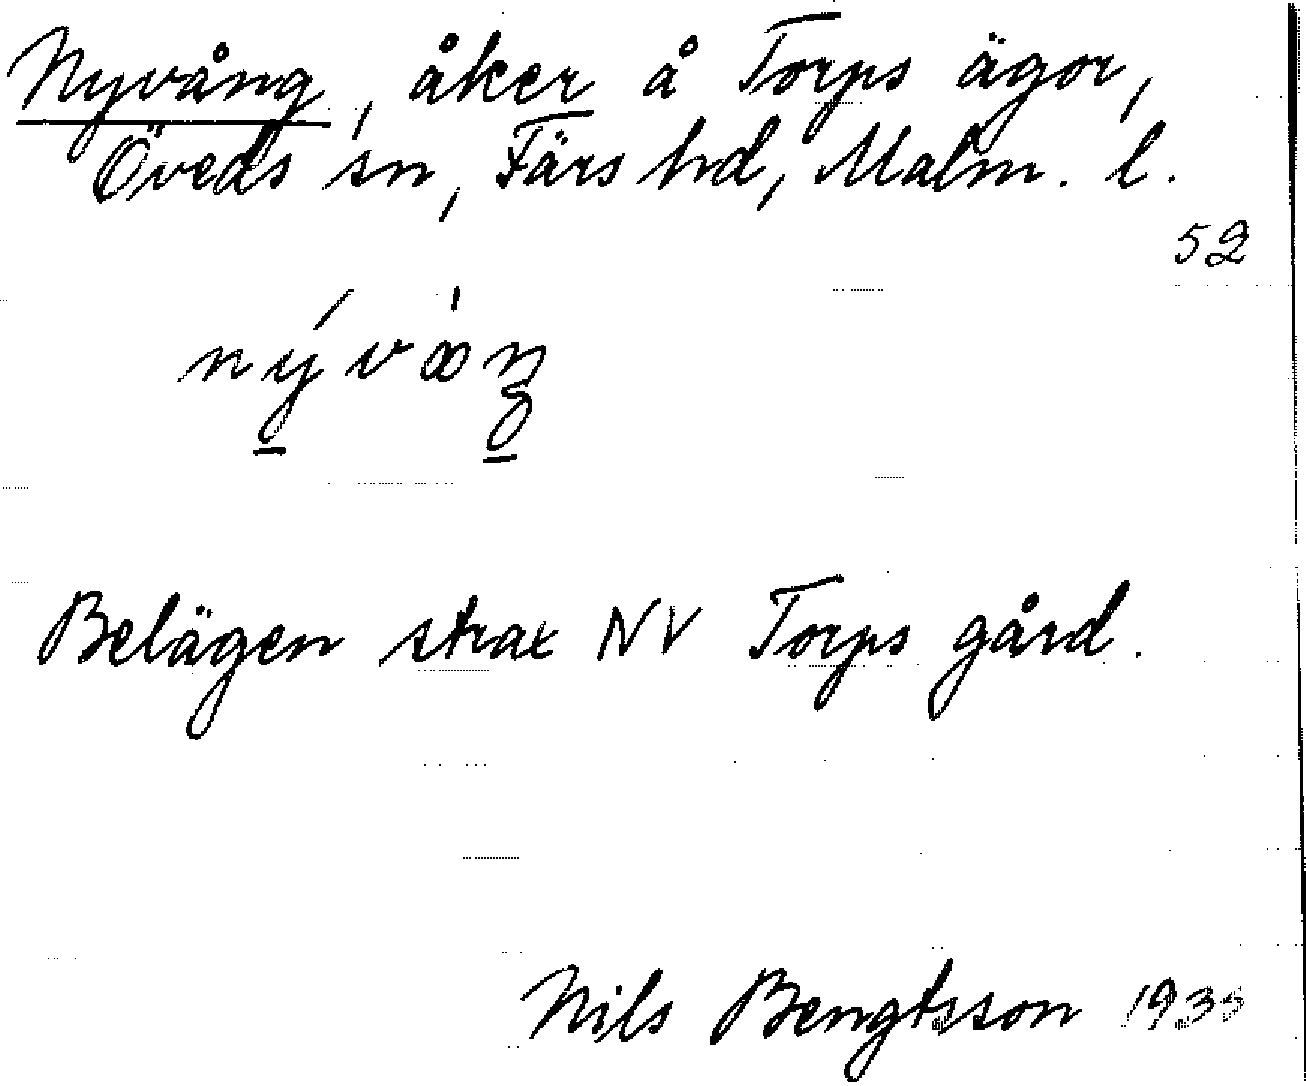 Nyvång, åker å Torps ägor,
Öveds sn, Färs hd, Malm. l.
52
Belägen strax NV Torps gård.
Nils Bengtsson 1935